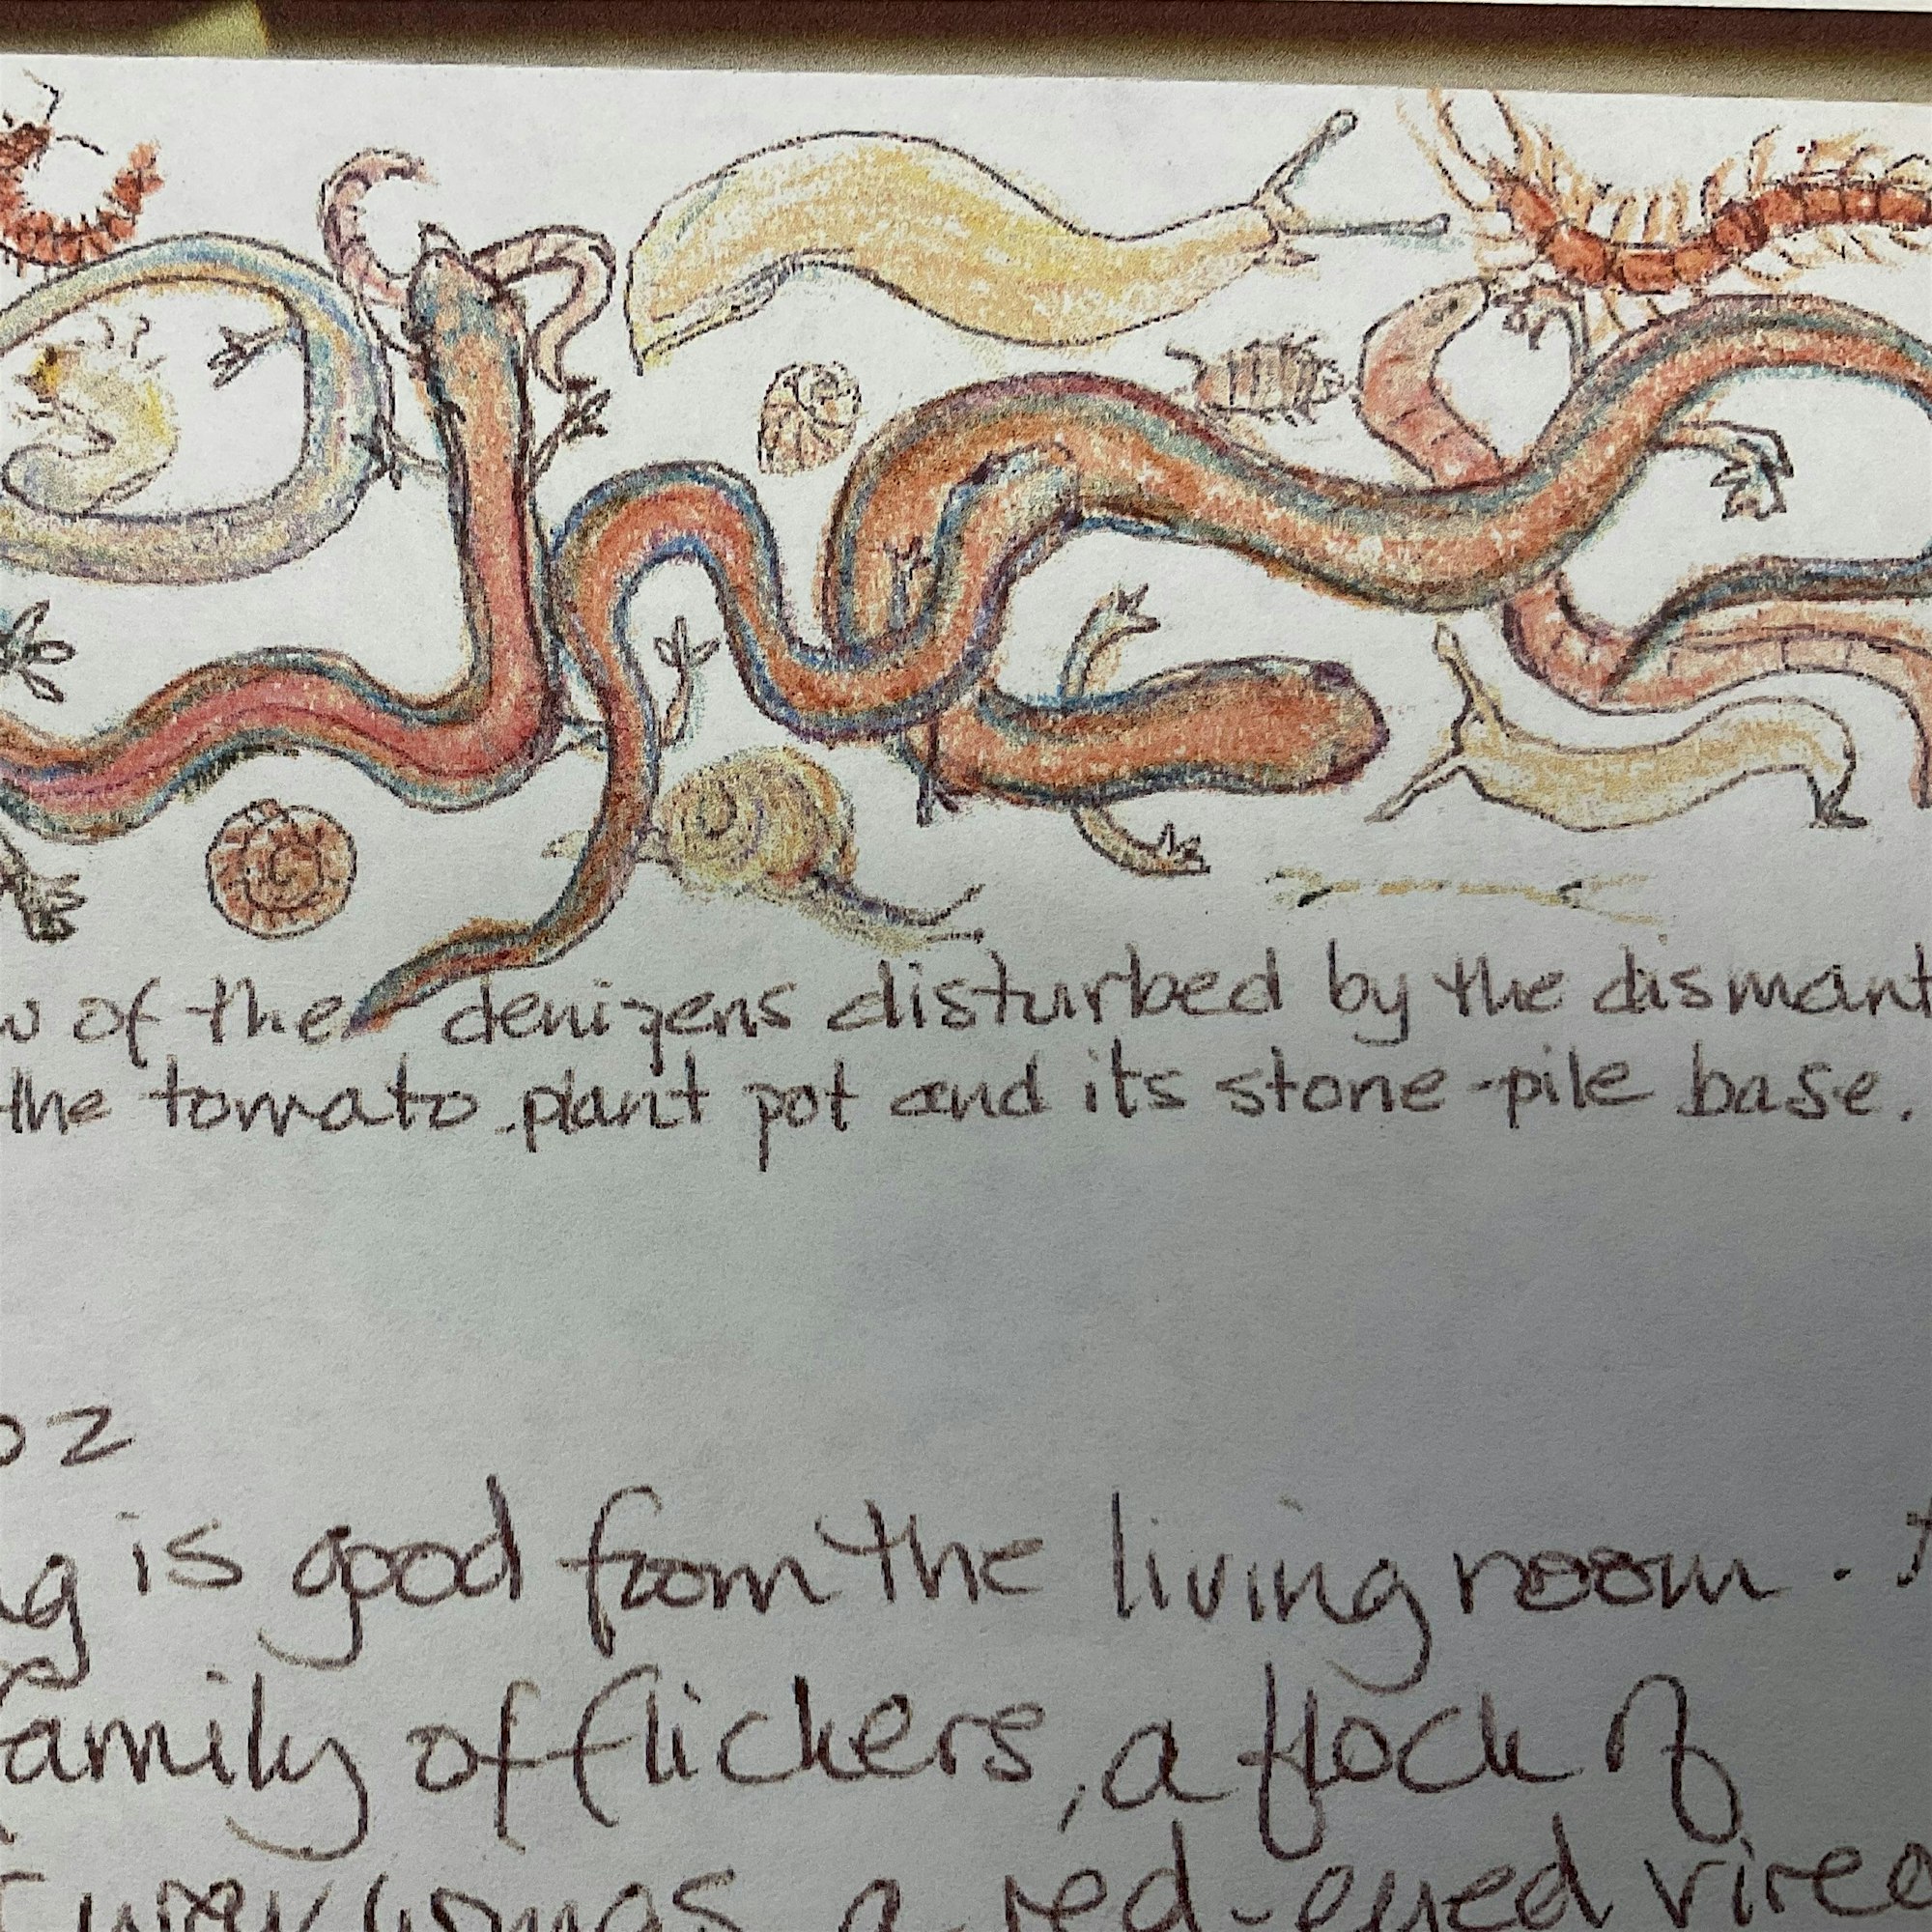 w of the denizens disturbed by the dismant
the tomato plant pot and its stone-pile base.
02
ng is good from the living room.
family of flickers, a flock of
waxwings, a red-eyed vireo